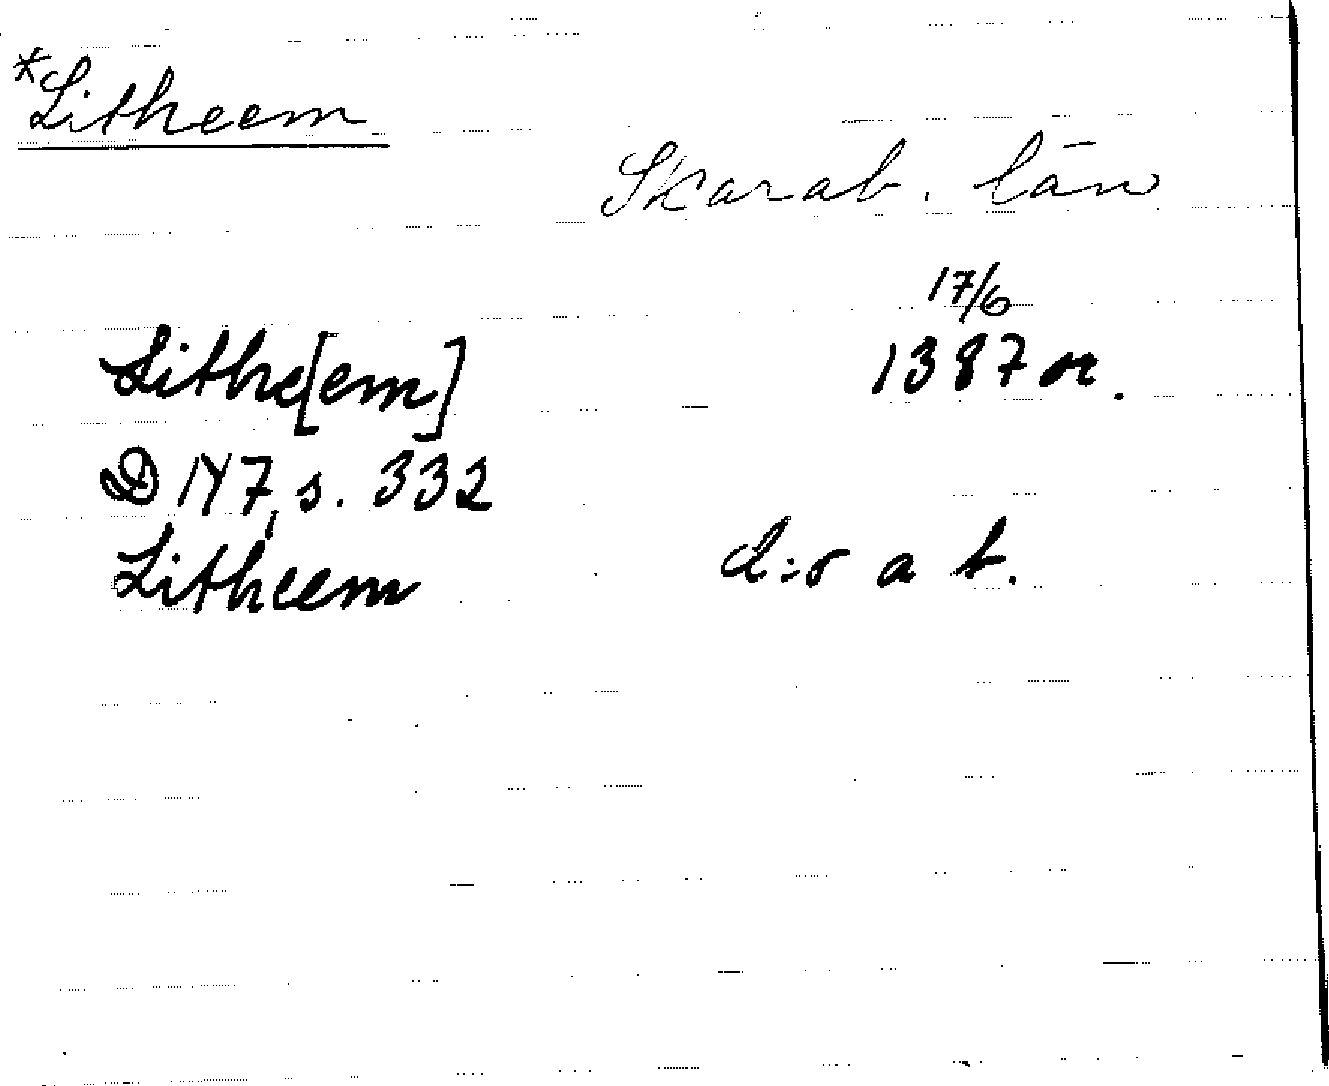 *Litheem
Skarab. län
17/6
Lithe[em] 1387 or.
D 147, s. 332
Litheem d:o a b.